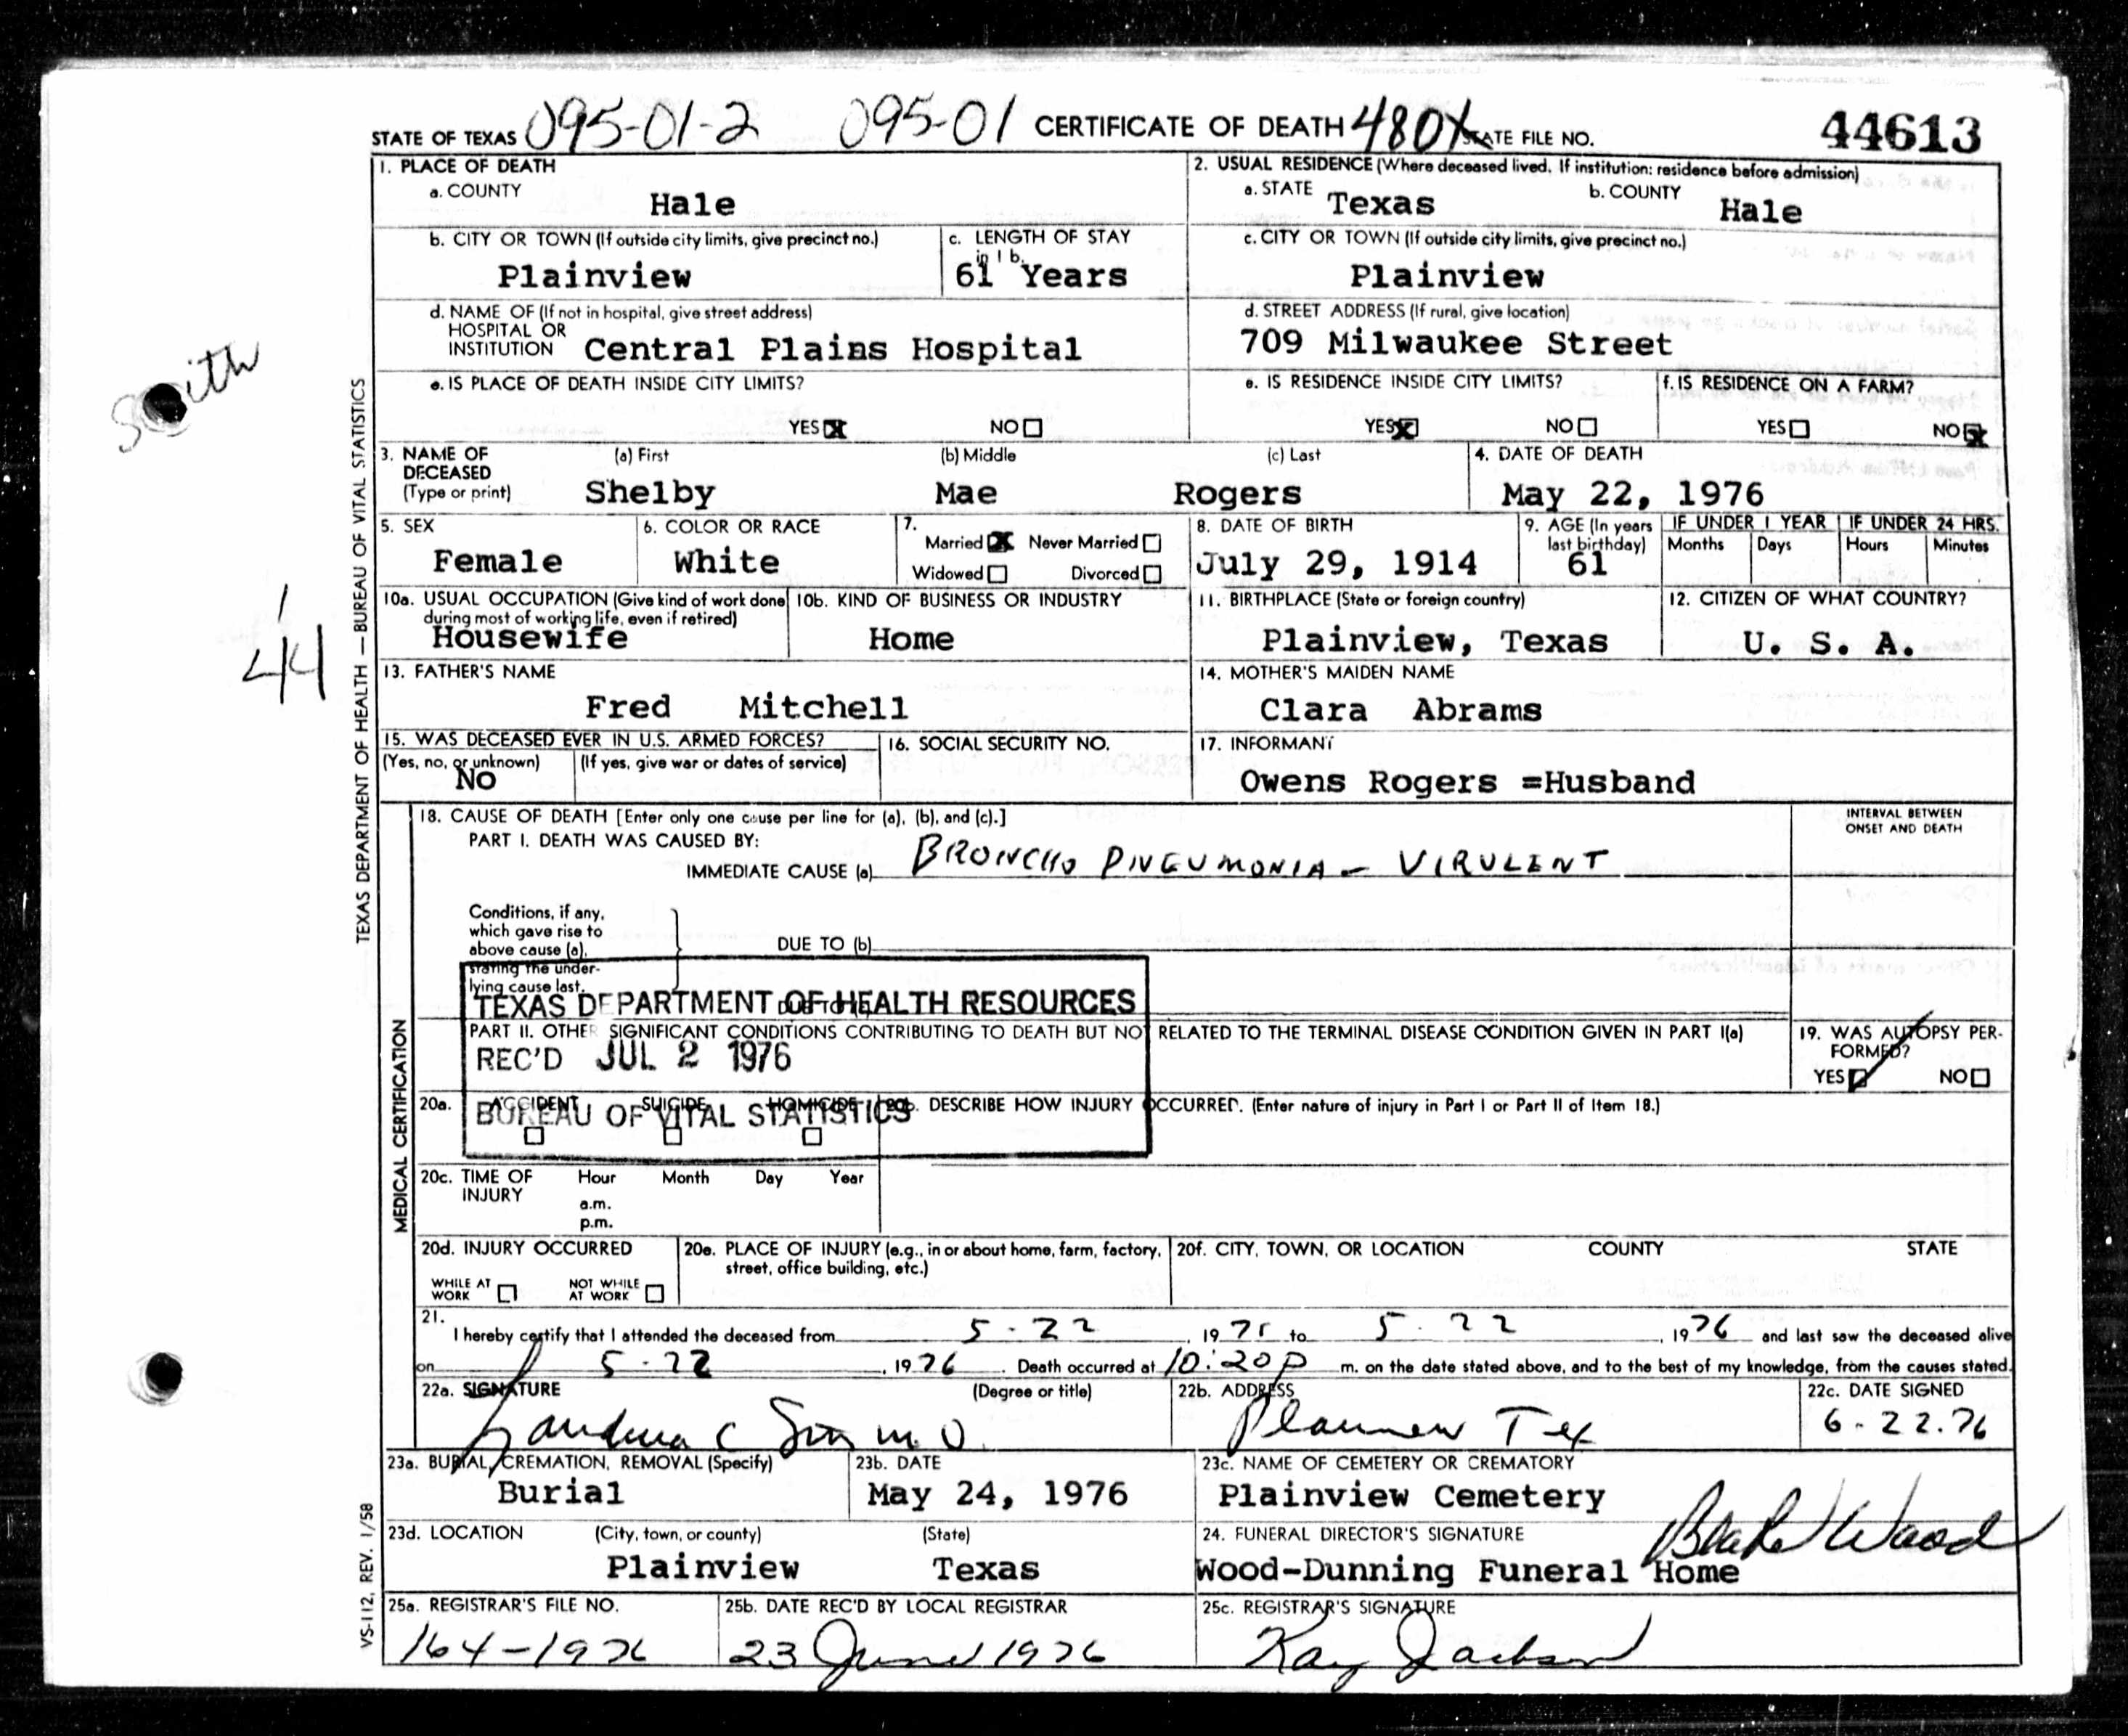 STATE OF TEXAS 095-01-2 095-01 CERTIFICATE OF DEATH 480X STATE FILE NO. 44613
1. PLACE OF DEATH
a. COUNTY Hale
2. USUAL RESIDENCE (Where deceased lived. If institution: residence before admission)
a. STATE Texas b. COUNTY Hale
b. CITY OR TOWN (If outside city limits, give precinct no.) Plainview
c. LENGTH OF STAY in 1 b. 61 Years
c. CITY OR TOWN (If outside city limits, give precinct no.) Plainview
d. NAME OF (If not in hospital, give street address)
HOSPITAL OR
INSTITUTION Central Plains Hospital
d. STREET ADDRESS (If rural, give location)
709 Milwaukee Street
e. IS PLACE OF DEATH INSIDE CITY LIMITS?
YES NO
e. IS RESIDENCE INSIDE CITY LIMITS?
YES NO
f. IS RESIDENCE ON A FARM?
YES NO
3. NAME OF DECEASED (Type or print)
(a) First (b) Middle (c) Last
Shelby Mae Rogers
4. DATE OF DEATH
May 22, 1976
5. SEX
Female
6. COLOR OR RACE
White
7.
Married Never Married
Widowed Divorced
8. DATE OF BIRTH
July 29, 1914
9. AGE (In years last birthday)
61
IF UNDER 1 YEAR
Months Days
IF UNDER 24 HRS.
Hours Minutes
10a. USUAL OCCUPATION (Give kind of work done
during most of working life, even if retired)
Housewife
10b. KIND OF BUSINESS OR INDUSTRY
Home
11. BIRTHPLACE (State or foreign country)
Plainview, Texas
12. CITIZEN OF WHAT COUNTRY?
U. S. A.
13. FATHER'S NAME
Fred Mitchell
14. MOTHER'S MAIDEN NAME
Clara Abrams
15. WAS DECEASED EVER IN U.S. ARMED FORCES?
(Yes, no, or unknown) (If yes, give war or dates of service)
No
16. SOCIAL SECURITY NO.
17. INFORMANT
Owens Rogers =Husband
18. CAUSE OF DEATH [Enter only one cause per line for (a), (b), and (c).]
PART I. DEATH WAS CAUSED BY:
IMMEDIATE CAUSE (a) BRONCHO PNEUMONIA - VIRULENT
INTERVAL BETWEEN
ONSET AND DEATH
Conditions, if any,
which gave rise to
above cause (a),
stating the under-
lying cause last.
DUE TO (b)
DUE TO
TEXAS DEPARTMENT OF HEALTH RESOURCES
REC'D JUL 2 1976
BUREAU OF VITAL STATISTICS
PART II. OTHER SIGNIFICANT CONDITIONS CONTRIBUTING TO DEATH BUT NOT RELATED TO THE TERMINAL DISEASE CONDITION GIVEN IN PART I(a)
19. WAS AUTOPSY PER-
FORMED?
YES NO
20a. ACCIDENT SUICIDE HOMICIDE
20b. DESCRIBE HOW INJURY OCCURRED. (Enter nature of injury in Part I or Part II of Item 18.)
20c. TIME OF INJURY
Hour Month Day Year
a.m.
p.m.
20d. INJURY OCCURRED
WHILE AT WORK NOT WHILE AT WORK
20e. PLACE OF INJURY (e.g., in or about home, farm, factory,
street, office building, etc.)
20f. CITY, TOWN, OR LOCATION COUNTY STATE
21.
I hereby certify that I attended the deceased from 5-22, 19 to 5-22, 1976 and last saw the deceased alive
on 5-22, 1976. Death occurred at 10:20 p m. on the date stated above, and to the best of my knowledge, from the causes stated.
22a. SIGNATURE (Degree or title)
M.D.
22b. ADDRESS
Plainview Tex
22c. DATE SIGNED
6-22.76
23a. BURIAL, CREMATION, REMOVAL (Specify)
Burial
23b. DATE
May 24, 1976
23c. NAME OF CEMETERY OR CREMATORY
Plainview Cemetery
23d. LOCATION (City, town, or county) (State)
Plainview Texas
24. FUNERAL DIRECTOR'S SIGNATURE
Wood-Dunning Funeral Home
Wood
25a. REGISTRAR'S FILE NO.
164-1976
25b. DATE REC'D BY LOCAL REGISTRAR
23 June 1976
25c. REGISTRAR'S SIGNATURE
Kay Jackson
TEXAS DEPARTMENT OF HEALTH — BUREAU OF VITAL STATISTICS
MEDICAL CERTIFICATION
VS-112, REV. 1/58
44